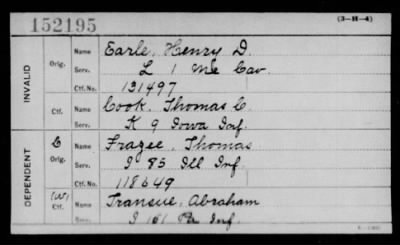 152195
(3-H-4)
INVALID
Orig.
Name Earle, Henry D.
Serv. L 1 Me Cav.
Ctf. No. 131497
Ctf.
Name Cook, Thomas C.
Serv. K 9 Iowa Inf.
DEPENDENT
C
Orig.
Name Frazee, Thomas
Serv. I 85 Ill Inf
Ctf. No. 118649
(W)
Ctf.
Name Transue, Abraham
Serv. I 161 Pa Inf.